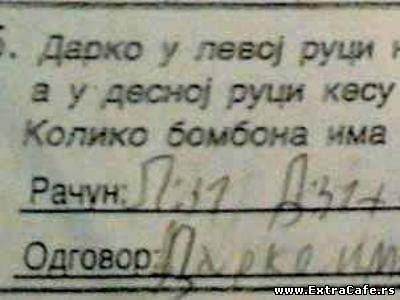 5. Дарко у левој руци н
а у десној руци кесу
Колико бомбона има
Рачун:
Одговор: Дарко им
www.ExtraCafe.rs